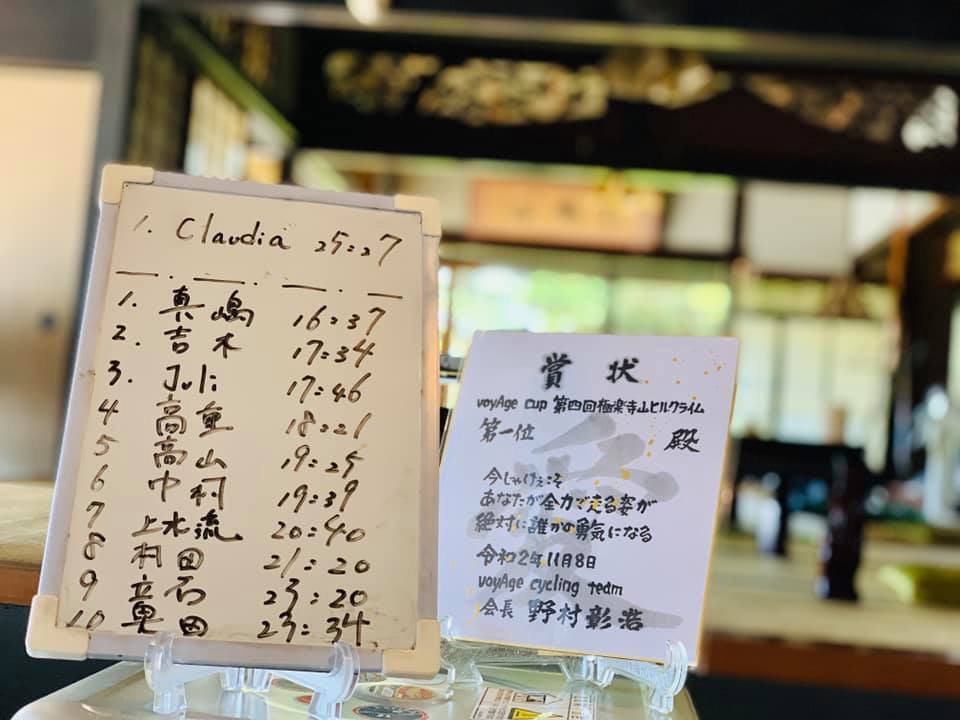 1. Claudia 25:27
1. 真嶋 16:37
2. 吉木 17:34
3. Juli 17:46
4 高重 18:21
5 高山 19:25
6 中村 19:39
7 上水流 20:40
8 村田 21:20
9 立石 23:20
10 車田 23:34
賞状
voyAge cup 第四回極楽寺山ヒルクライム
第一位
殿
今じゃけぇこそ
あなたが全力で走る姿が
絶対に誰かの勇気になる
令和2年11月8日
voyAge cycling team
会長 野村彰浩